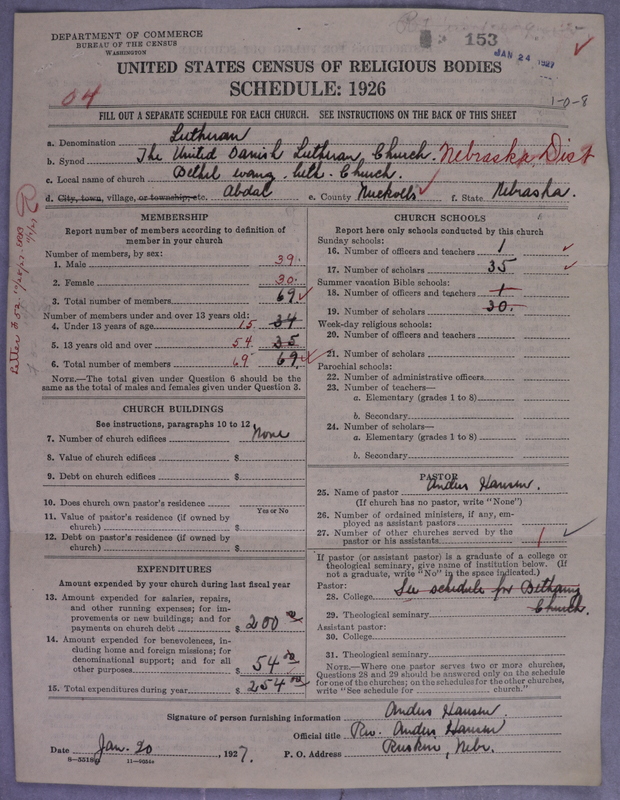 DEPARTMENT OF COMMERCE
BUREAU OF THE CENSUS
WASHINGTON
153
JAN 24 1927
UNITED STATES CENSUS OF RELIGIOUS BODIES
SCHEDULE: 1926
04
1-0-8
FILL OUT A SEPARATE SCHEDULE FOR EACH CHURCH. SEE INSTRUCTIONS ON THE BACK OF THIS SHEET
a. Denomination Lutheran
b. Synod The United Danish Lutheran Church. Nebraska Dist
c. Local name of church Bethel evang. luth. Church.
d. City, town, village, or township, etc. Abdal e. County Nuckolls f. State Nebraska.
MEMBERSHIP
Report number of members according to definition of member in your church
Number of members, by sex:
1. Male 39.
2. Female 30.
3. Total number of members 69
Number of members under and over 13 years old:
4. Under 13 years of age 15 34
5. 13 years old and over 54 35
6. Total number of members 69 69
NOTE.—The total given under Question 6 should be the same as the total of males and females given under Question 3.
CHURCH BUILDINGS
See instructions, paragraphs 10 to 12
7. Number of church edifices None
8. Value of church edifices $
9. Debt on church edifices $
10. Does church own pastor's residence
Yes or No
11. Value of pastor's residence (if owned by church) $
12. Debt on pastor's residence (if owned by church) $
EXPENDITURES
Amount expended by your church during last fiscal year
13. Amount expended for salaries, repairs, and other running expenses; for improvements or new buildings; and for payments on church debt $ 200
14. Amount expended for benevolences, including home and foreign missions; for denominational support; and for all other purposes $ 54
15. Total expenditures during year $ 254
CHURCH SCHOOLS
Report here only schools conducted by this church
Sunday schools:
16. Number of officers and teachers 1
17. Number of scholars 35
Summer vacation Bible schools:
18. Number of officers and teachers 1
19. Number of scholars 30.
Week-day religious schools:
20. Number of officers and teachers
21. Number of scholars
Parochial schools:
22. Number of administrative officers
23. Number of teachers—
a. Elementary (grades 1 to 8)
b. Secondary
24. Number of scholars—
a. Elementary (grades 1 to 8)
b. Secondary
PASTOR
25. Name of pastor Anders Hansen.
(If church has no pastor, write "None")
26. Number of ordained ministers, if any, employed as assistant pastors
27. Number of other churches served by the pastor or his assistants 1
If pastor (or assistant pastor) is a graduate of a college or theological seminary, give name of institution below. (If not a graduate, write "No" in the space indicated.)
Pastor:
28. College See schedule for Bethany Church.
29. Theological seminary
Assistant pastor:
30. College
31. Theological seminary
NOTE.—Where one pastor serves two or more churches, Questions 28 and 29 should be answered only on the schedule for one of the churches; on the schedules for the other churches, write "See schedule for ______ church."
Signature of person furnishing information Anders Hansen.
Official title Rev. Anders Hansen
Date Jan. 20, 1927. P. O. Address Ruskin, Nebr.